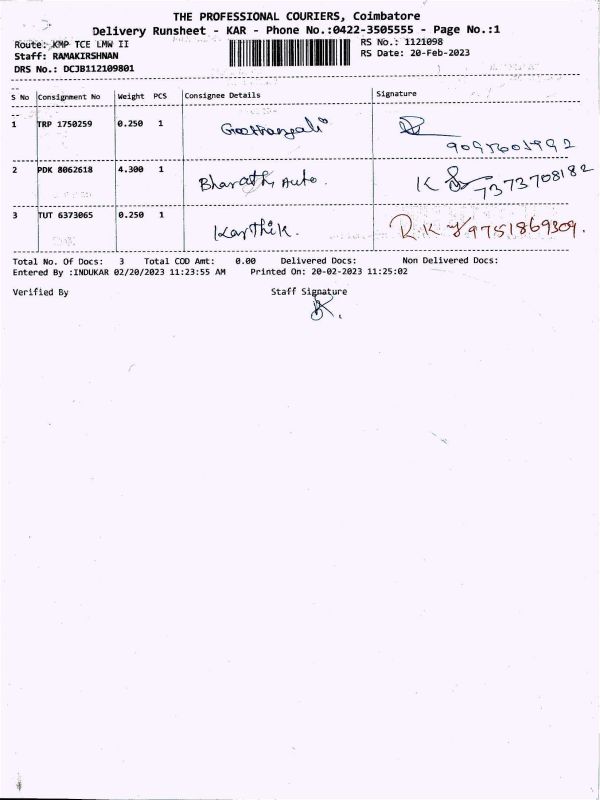 THE PROFESSIONAL COURIERS, Coimbatore
Delivery Runsheet - KAR - Phone No.:0422-3505555 - Page No.:1
Route: KMP TCE LMW II RS No.: 1121098
Staff: RAMAKIRSHNAN RS Date: 20-Feb-2023
DRS No.: DCJB112109801
S No Consignment No Weight PCS Consignee Details Signature
1 TRP 1750259 0.250 1
2 PDK 8062618 4.300 1 Bharath Auto. K 7373708182
3 TUT 6373065 0.250 1 Karthik. R.K 9751869309.
Total No. Of Docs: 3 Total COD Amt: 0.00 Delivered Docs: Non Delivered Docs:
Entered By :INDUKAR 02/20/2023 11:23:55 AM Printed On: 20-02-2023 11:25:02
Verified By Staff Signature